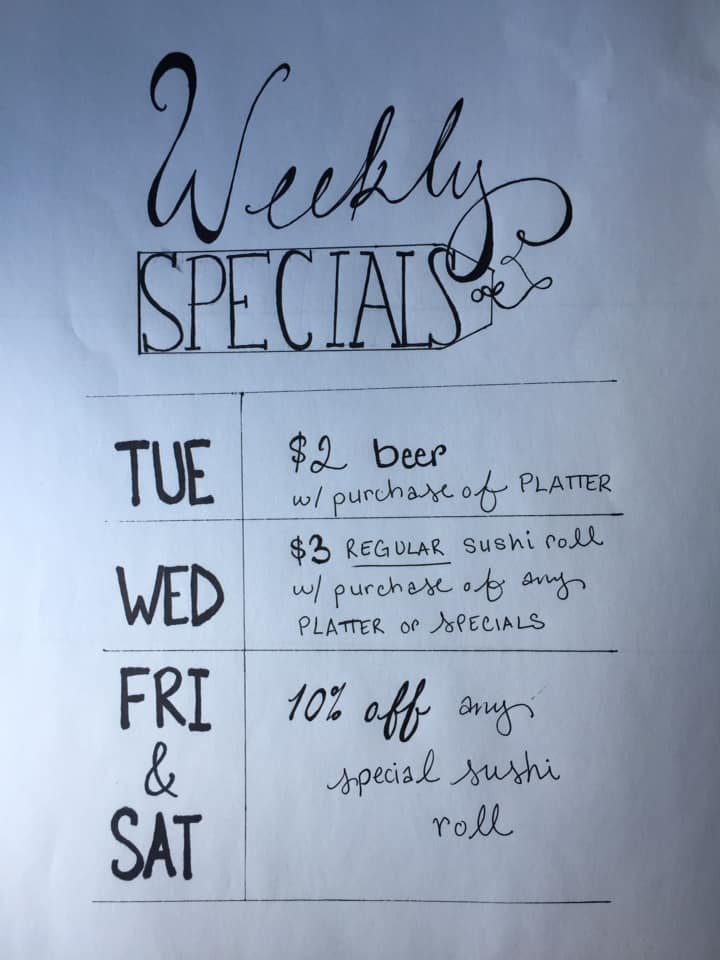 Weekly
SPECIALS
TUE
$2 beer
w/ purchase of PLATTER
WED
$3 REGULAR sushi roll
w/ purchase of any
PLATTER or SPECIALS
FRI
&
SAT
10% off any
special sushi
roll